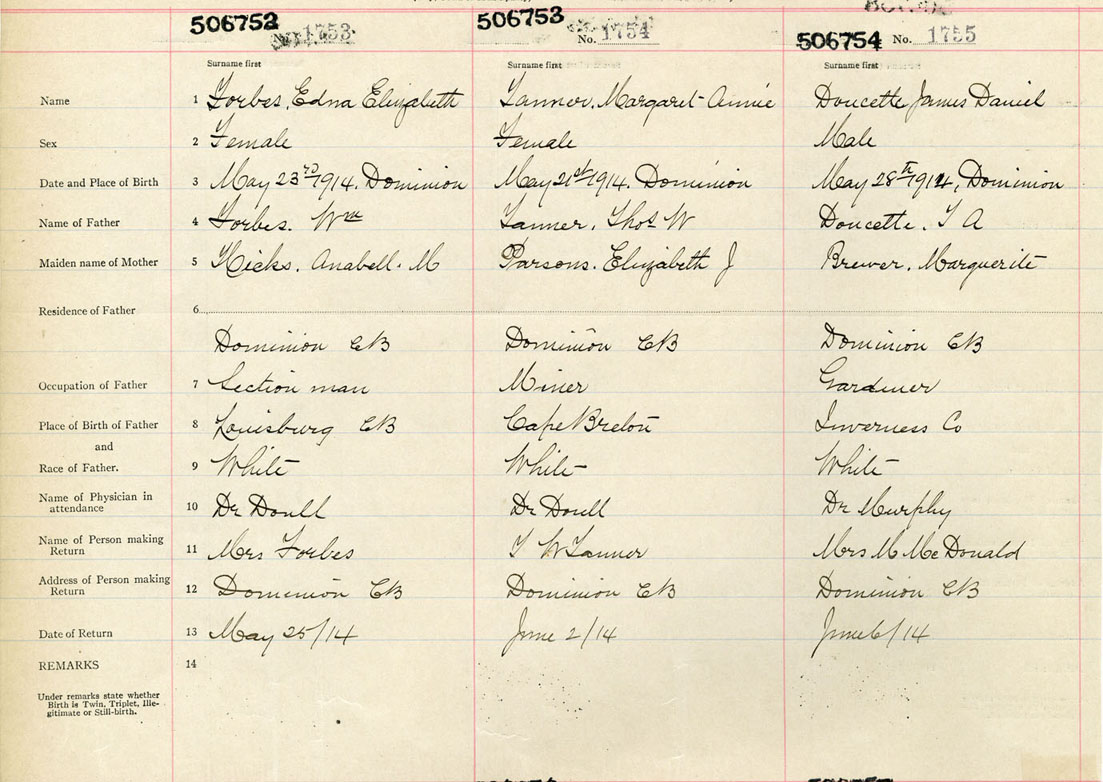 506752 No. 1753 506753 No. 1754 506754 No. 1755
Surname first Surname first Surname first
Name 1 Forbes, Edna Elizabeth Tanner, Margaret Annie Doucette James Daniel
Sex 2 Female Female Male
Date and Place of Birth 3 May 23rd 1914. Dominion May 21st 1914. Dominion May 28th 1914, Dominion
Name of Father 4 Forbes. Wm Tanner, Thos W Doucette. T A
Maiden name of Mother 5 Hicks. Anabell. M Parsons. Elizabeth J Brewer. Marguerite
Residence of Father 6
Dominion CB Dominion CB Dominion CB
Occupation of Father 7 Section man Miner Gardiner
Place of Birth of Father 8 Louisburg CB Cape Breton Inverness Co
and
Race of Father. 9 White White White
Name of Physician in
attendance 10 Dr Doull Dr Doull Dr Murphy
Name of Person making
Return 11 Mrs Forbes T W Tanner Mrs M McDonald
Address of Person making
Return 12 Dominion CB Dominion CB Dominion CB
Date of Return 13 May 25/14 June 2/14 June 6/14
REMARKS 14
Under remarks state whether
Birth is Twin, Triplet, Ille-
gitimate or Still-birth.